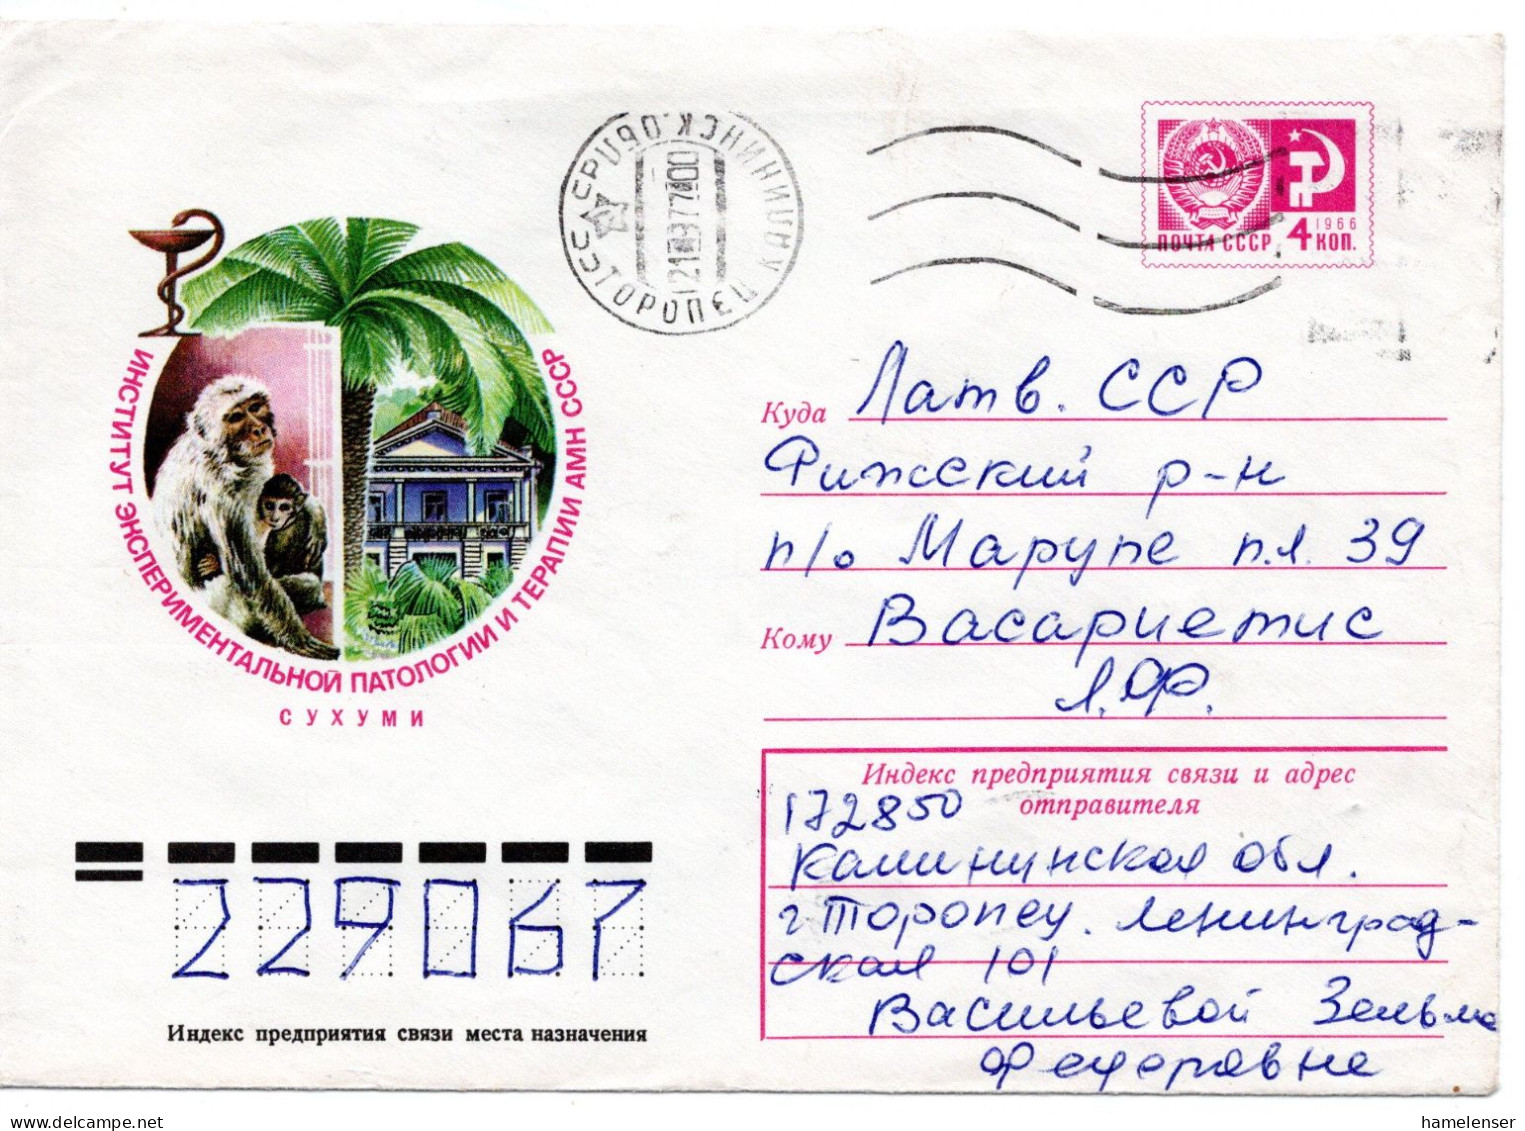 ТОРОПЕЦ КАЛИНИНСК.ОБЛ
СССР
ПОЧТА СССР 4 КОП.
1966
ИНСТИТУТ ЭКСПЕРИМЕНТАЛЬНОЙ ПАТОЛОГИИ И ТЕРАПИИ АМН СССР
СУХУМИ
Куда Латв. ССР
Рижский р-н
п/о Марупе пл. 39
Кому Васариетис
Л.Ф.
Индекс предприятия связи и адрес
отправителя
172850
Калининская обл.
г Торопец. Ленинград-
ская 101
Васильевой Зельма
Федоровне
229067
Индекс предприятия связи места назначения
hamelenser